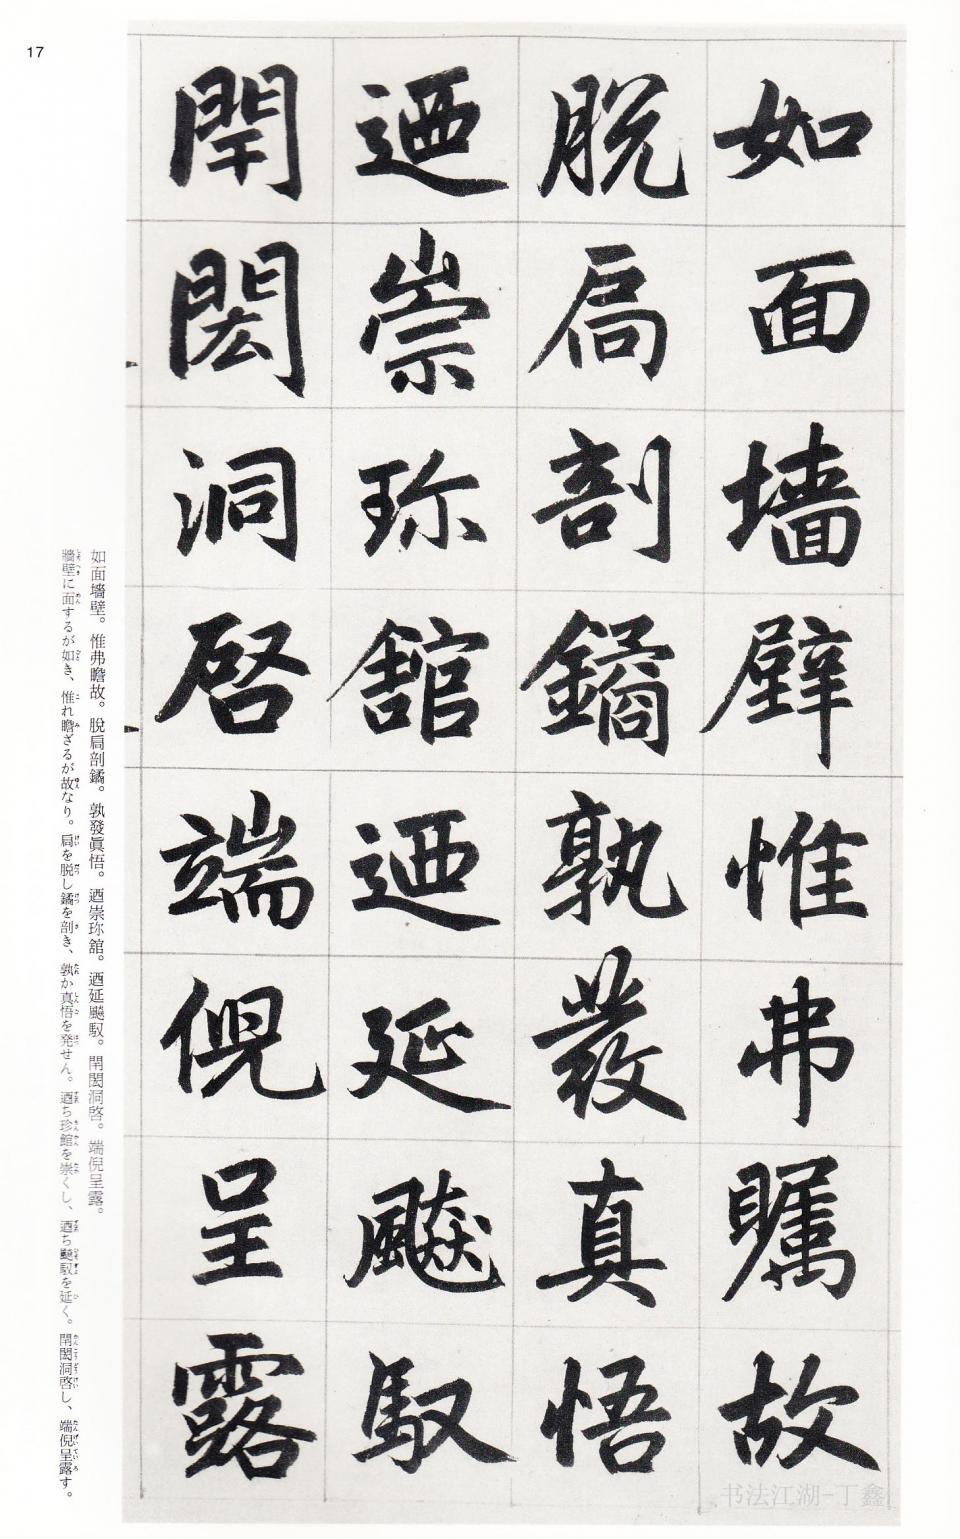 17
如面墻壁惟弗矚故
脱扃剖鐍孰發真悟
迺崇珎舘迺延飈馭
閈閎洞啓端倪呈露
如面墻壁。惟弗瞻故。脫扃剖鐍。孰發眞悟。迺崇珎舘。迺延飈馭。閈閎洞啓。端倪呈露。
牆壁に面するが如き、惟れ瞻ざるが故なり。扃を脱し鐍を剖き、孰か真悟を発せん。迺ち珍館を崇くし、迺ち飈馭を延く。閈閎洞啓し、端倪呈露す。
书法江湖-丁鑫